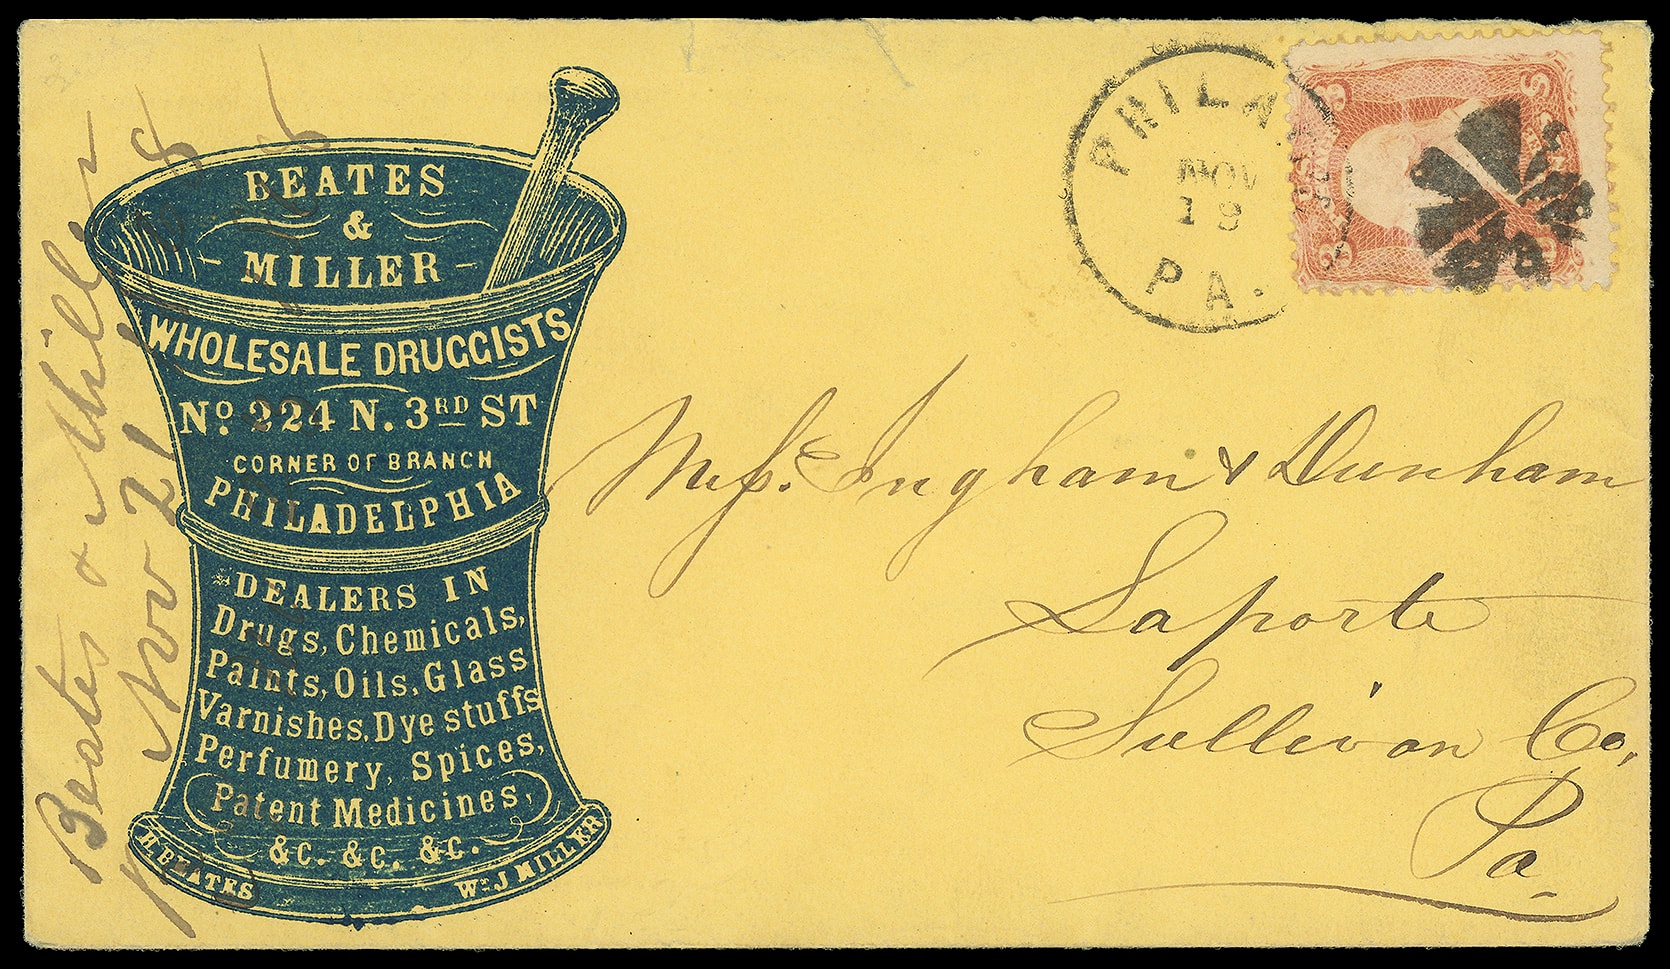 BEATES
&
MILLER
WHOLESALE DRUGGISTS
No. 224 N. 3RD ST
CORNER OF BRANCH
PHILADELPHIA
DEALERS IN
Drugs, Chemicals,
Paints, Oils, Glass
Varnishes, Dye stuffs
Perfumery, Spices,
Patent Medicines,
&c. &c. &c.
H. BEATES
Wm J MILLER
Beates & Miller
Nov 21
PHILA
NOV
19
PA.
3
U S
Mess. Ingham & Dunham
Laporte
Sullivan Co,
Pa